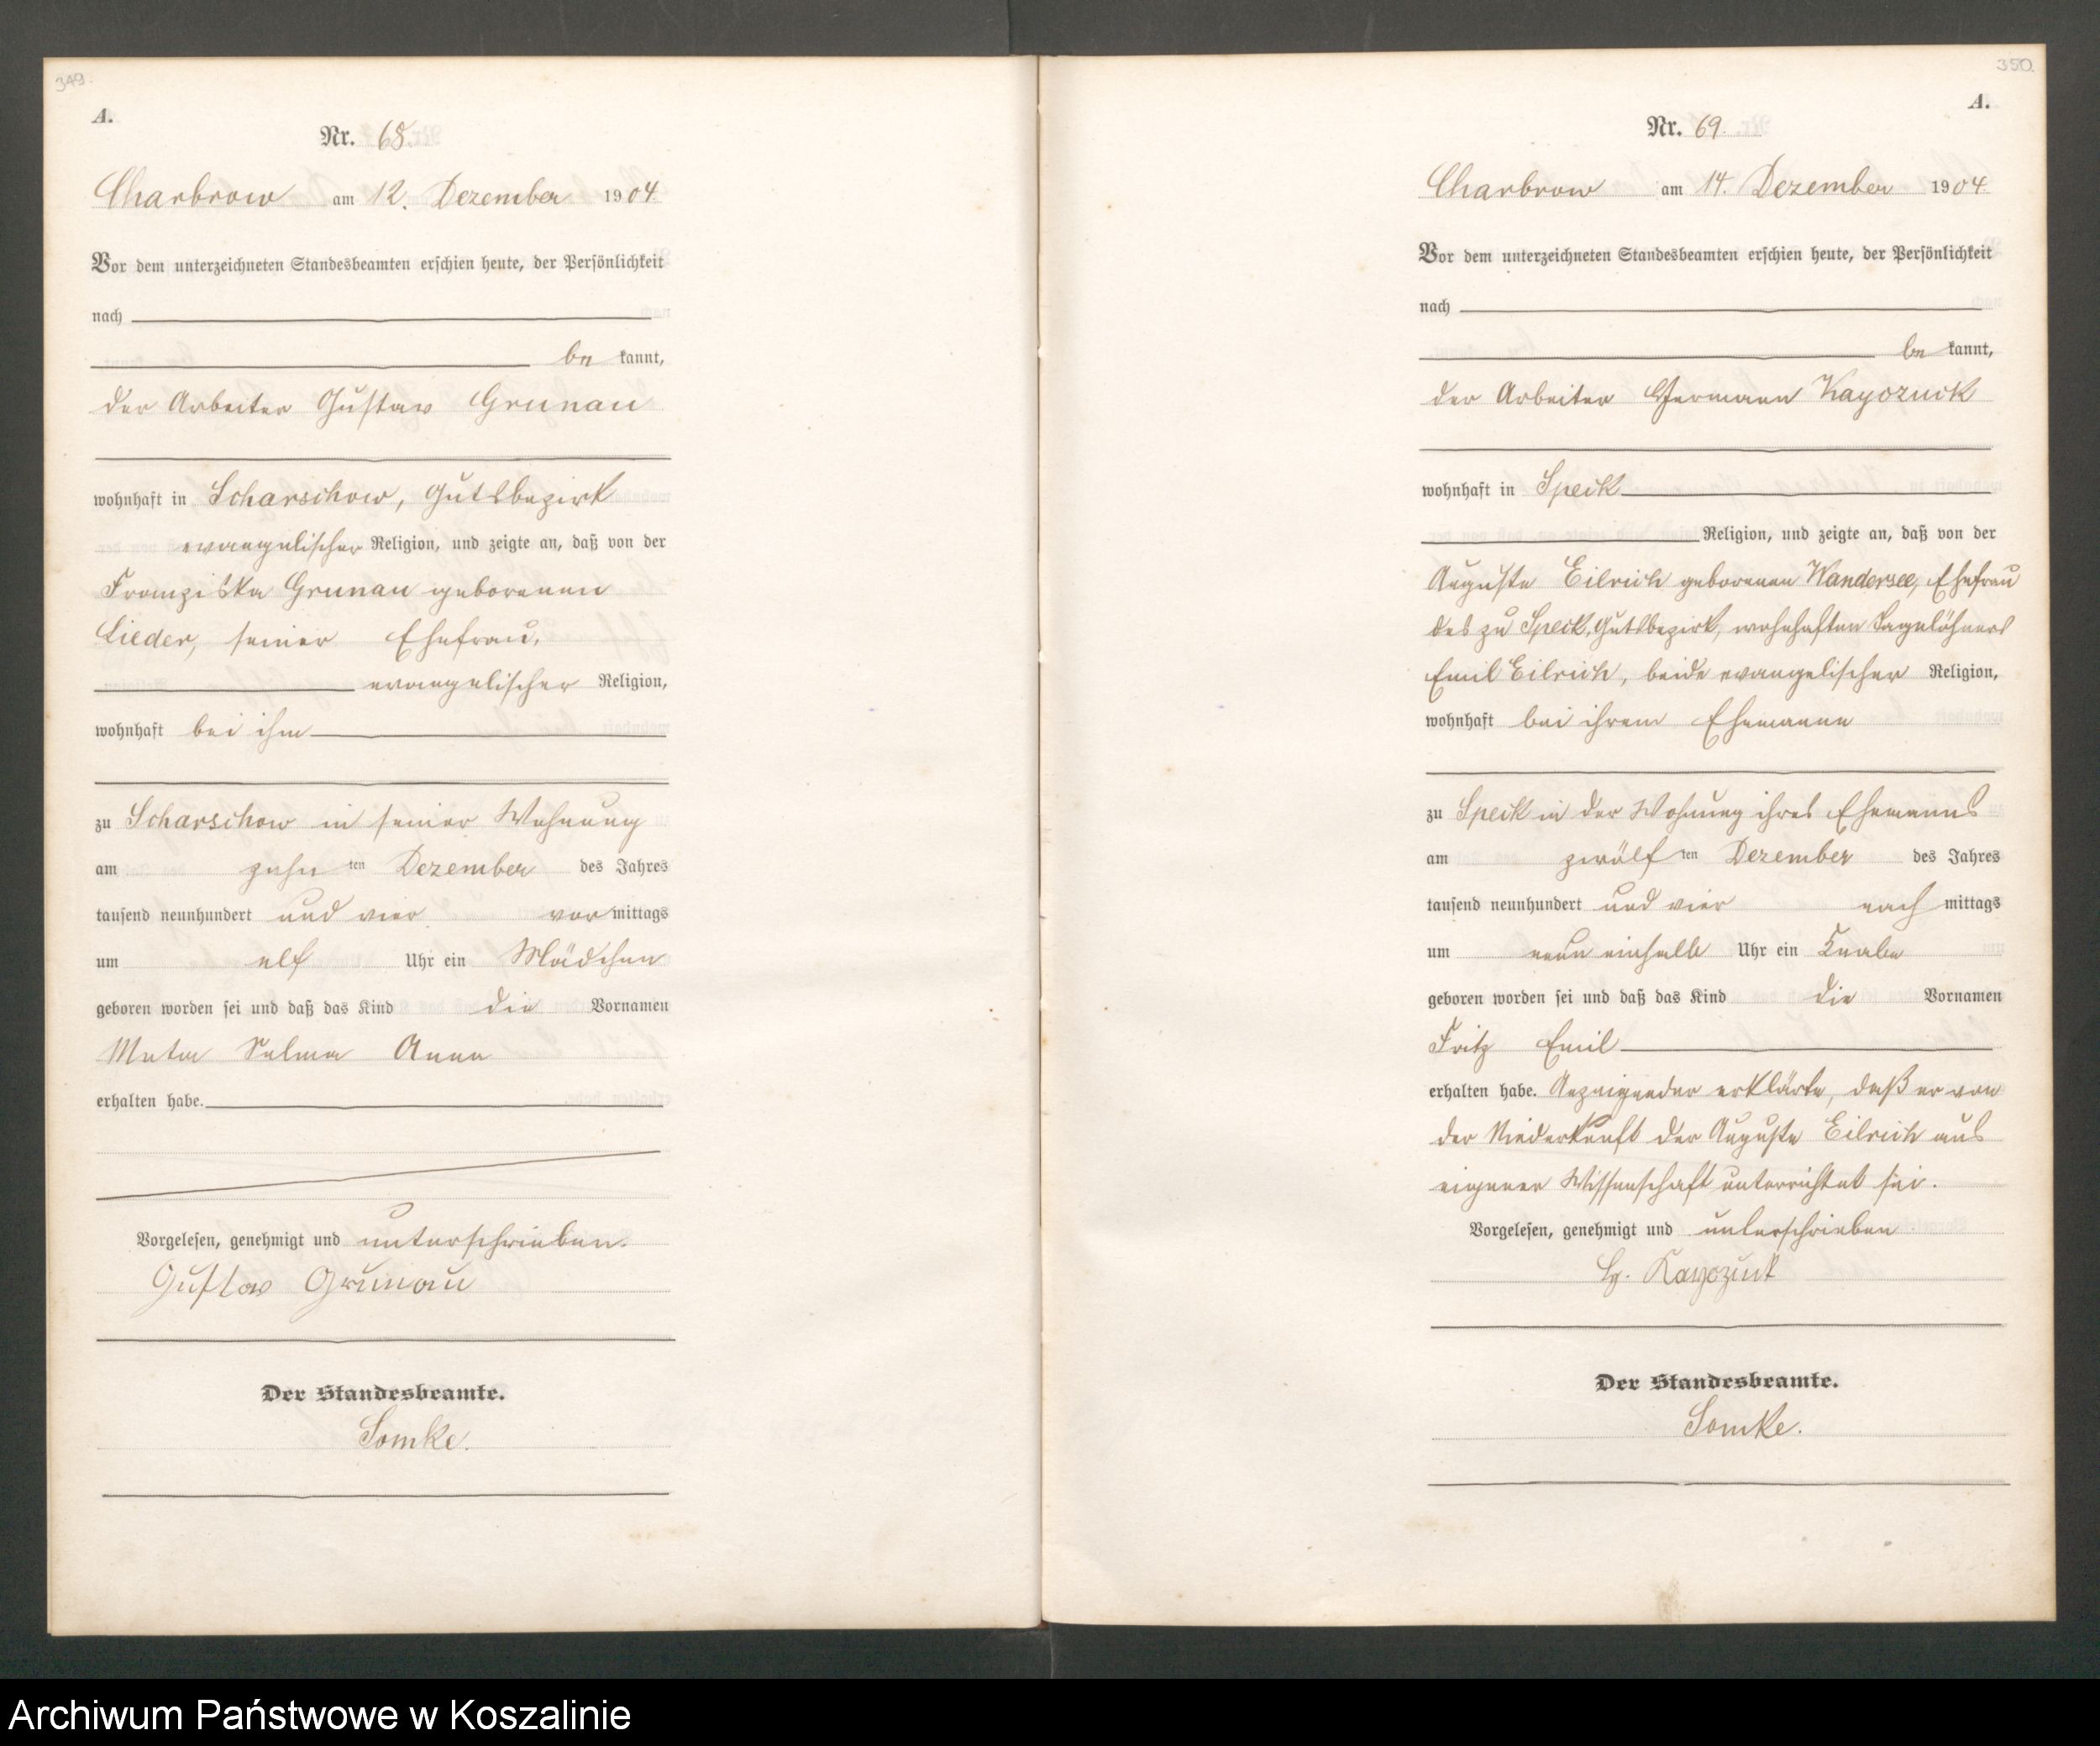 349.
A.
Nr. 68.
Charbrow am 12. Dezember 1904
Vor dem unterzeichneten Standesbeamten erschien heute, der Persönlichkeit
nach
be kannt,
der Arbeiter Gustav Grunau
wohnhaft in Scharschow, Gutsbezirk
evangelischer Religion, und zeigte an, daß von der
Franziska Grunau geborenen
Lieder, seiner Ehefrau,
evangelischer Religion,
wohnhaft bei ihm
zu Scharschow in seiner Wohnung
am zehn ten Dezember des Jahres
tausend neunhundert und vier vor mittags
um elf Uhr ein Mädchen
geboren worden sei und daß das Kind die Vornamen
Meta Selma Anna
erhalten habe.
Vorgelesen, genehmigt und unterschrieben.
Gustav Grunau
Der Standesbeamte.
Somke.
350.
A.
Nr. 69.
Charbrow am 14. Dezember 1904
Vor dem unterzeichneten Standesbeamten erschien heute, der Persönlichkeit
nach
be kannt,
der Arbeiter Hermann Kayozuck
wohnhaft in Speck
Religion, und zeigte an, daß von der
Auguste Eilrich geborenen Wandersee, Ehefrau
des zu Speck, Gutsbezirk, wohnhaften Tagelöhners
Emil Eilrich, beide evangelischer Religion,
wohnhaft bei ihrem Ehemanne
zu Speck in der Wohnung ihres Ehemanns
am zwölf ten Dezember des Jahres
tausend neunhundert und vier nach mittags
um neun einhalb Uhr ein Knabe
geboren worden sei und daß das Kind die Vornamen
Fritz Emil
erhalten habe. Anzeigender erklärte, daß er von
der Niederkunft der Auguste Eilrich aus
eigener Wissenschaft unterrichtet sei.
Vorgelesen, genehmigt und unterschrieben
H. Kayozuck
Der Standesbeamte.
Somke.
Archiwum Państwowe w Koszalinie